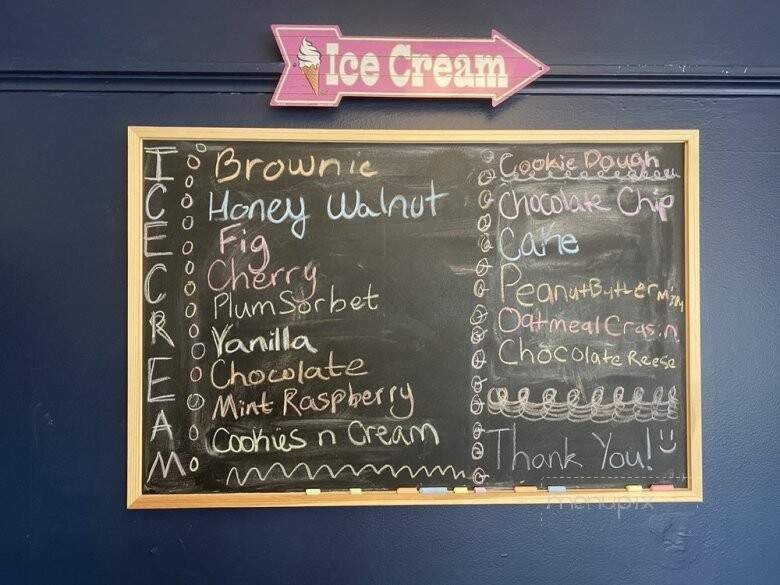 Ice Cream
ICE CREAM
Brownie
Honey Walnut
Fig
Cherry
Plum Sorbet
Vanilla
Chocolate
Mint Raspberry
Cookies n Cream
Cookie Dough
Chocolate Chip
Cake
Peanut Butter M&M
Oatmeal Crasin
Chocolate Reese
Thank You!
menupix